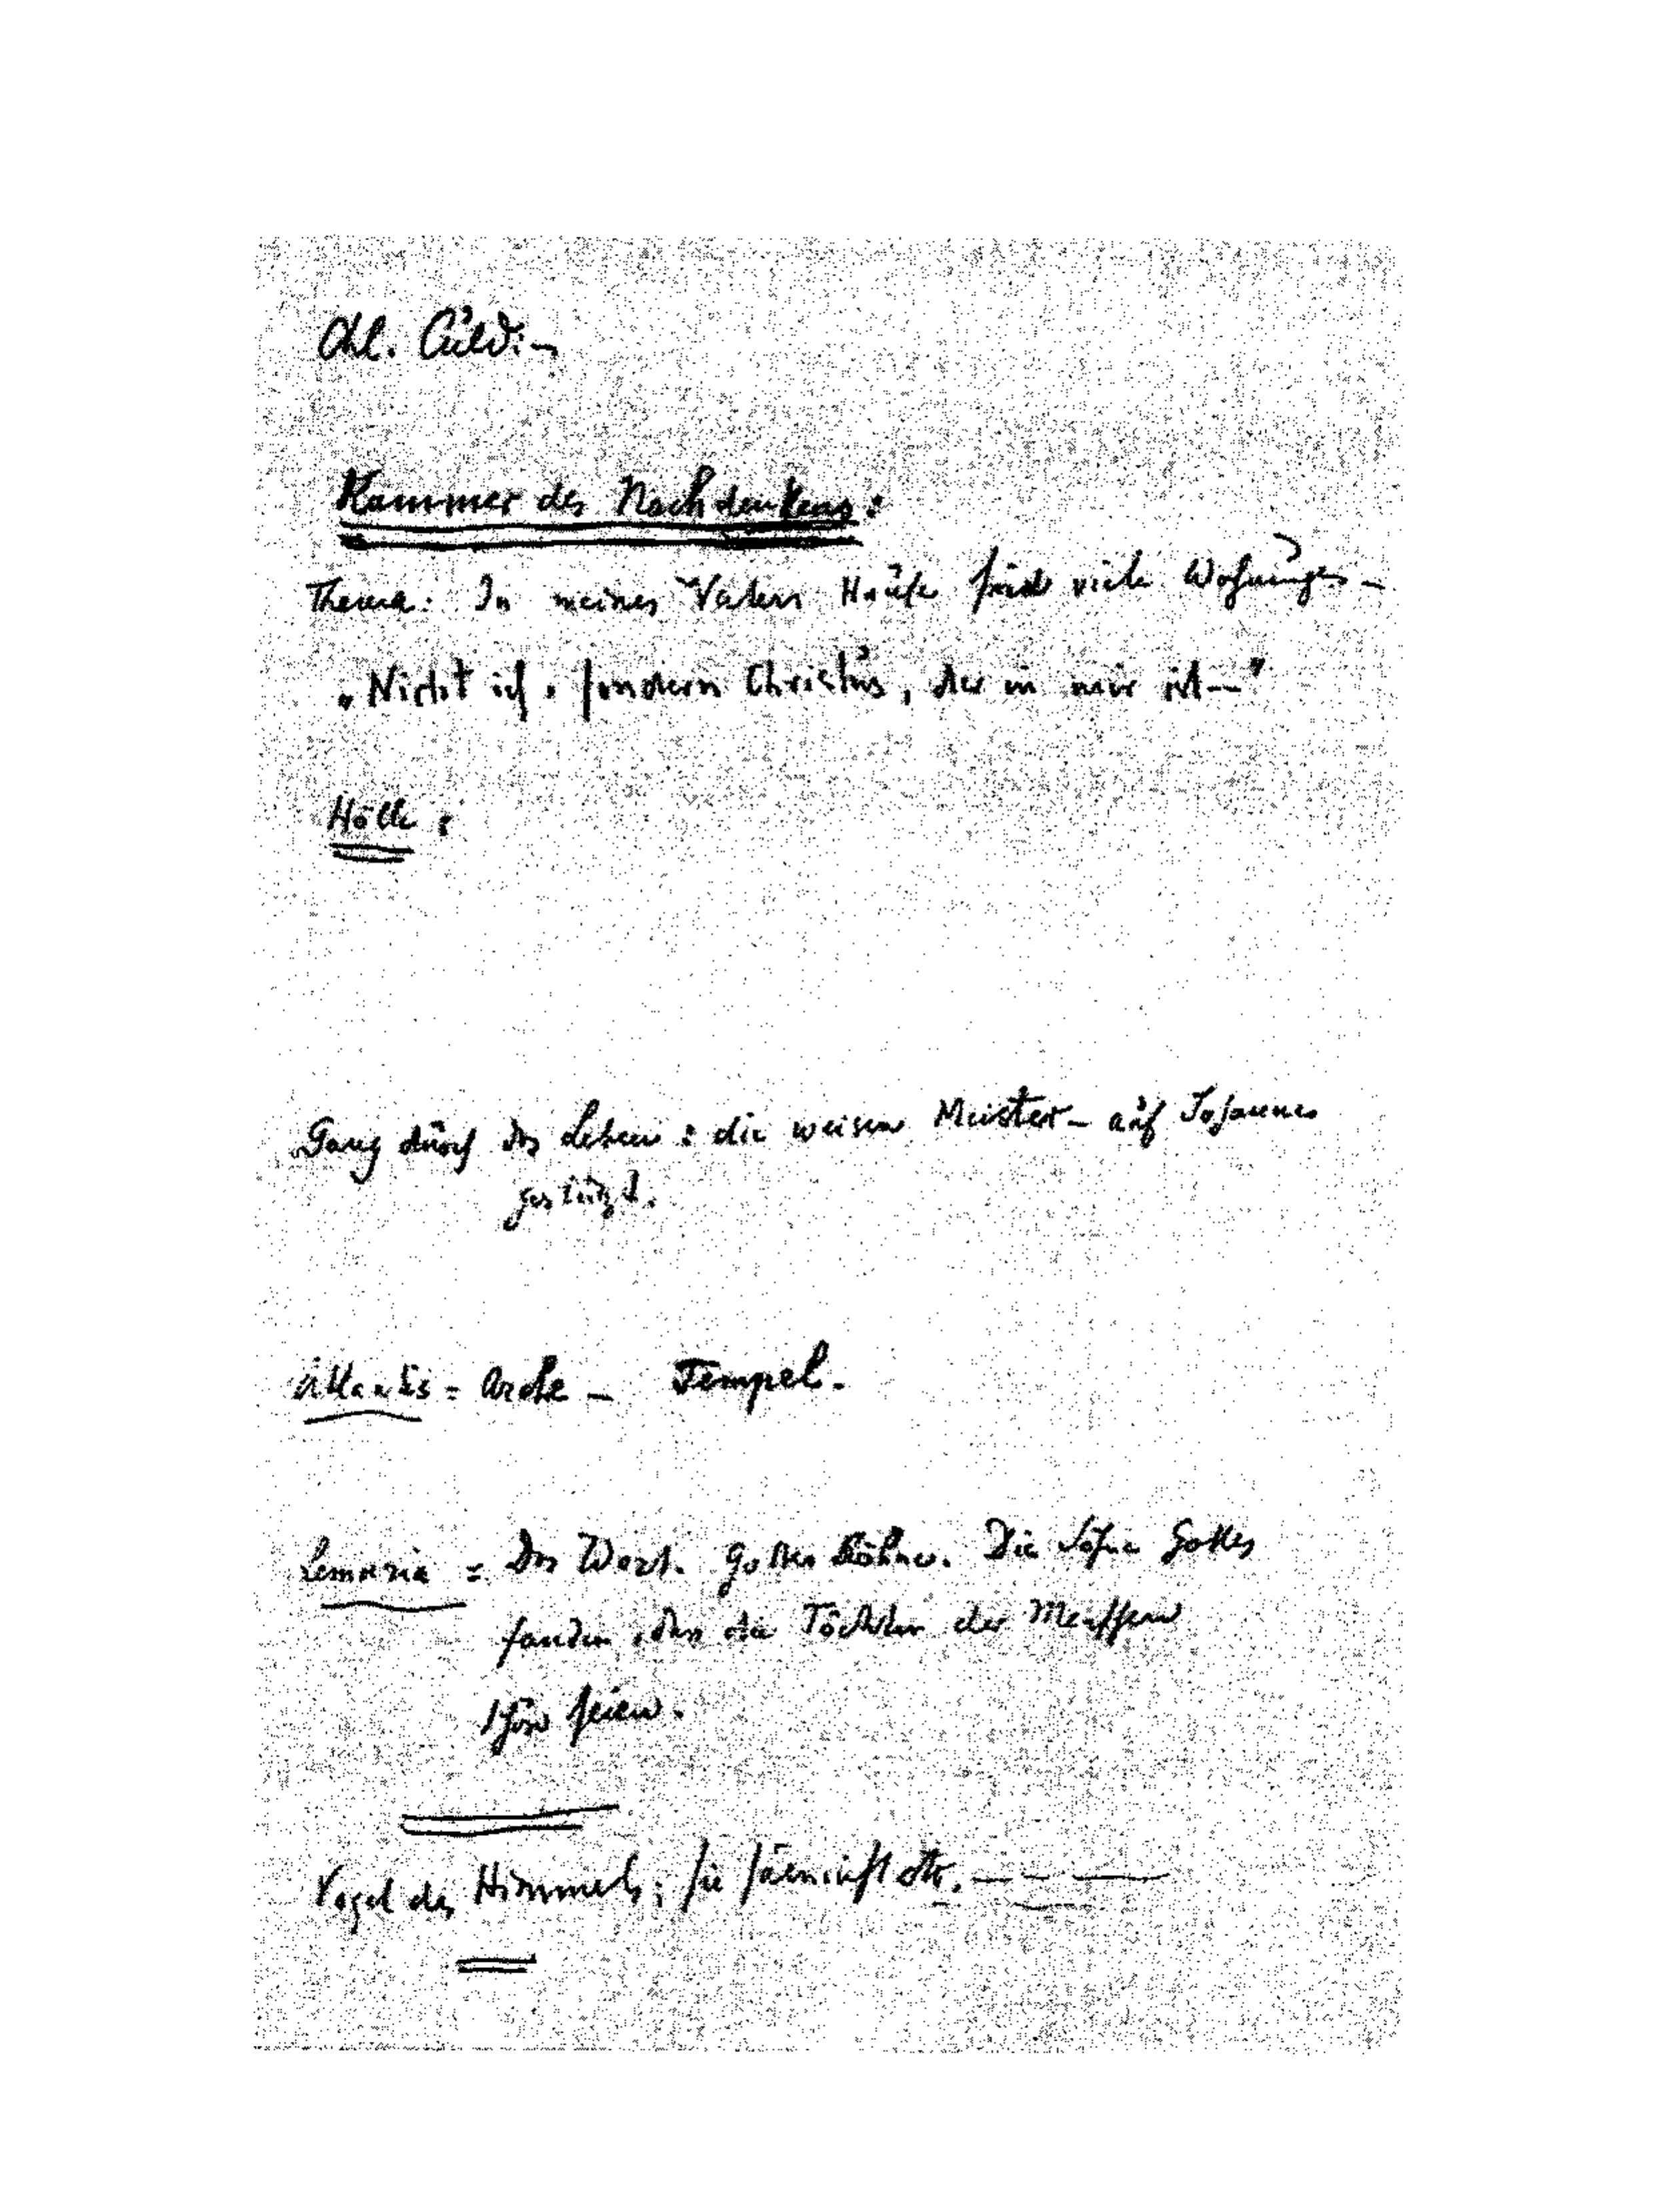 Kammer des Nachdenkens:
Thema: In meines Vaters Hause sind viele Wohnungen –
„Nicht ich, sondern Christus, der in mir ist –"
Hölle:
Gang durch das Leben: die weisen Meister – auf Johannes
gestützt.
Atlantis = Arche – Tempel.
Lemuria = Das Wort. Gottes Söhne. Die Söhne Gottes
fanden, dass die Töchter der Menschen
schön seien.
Vogel des Himmels; sie säen nicht etc. –